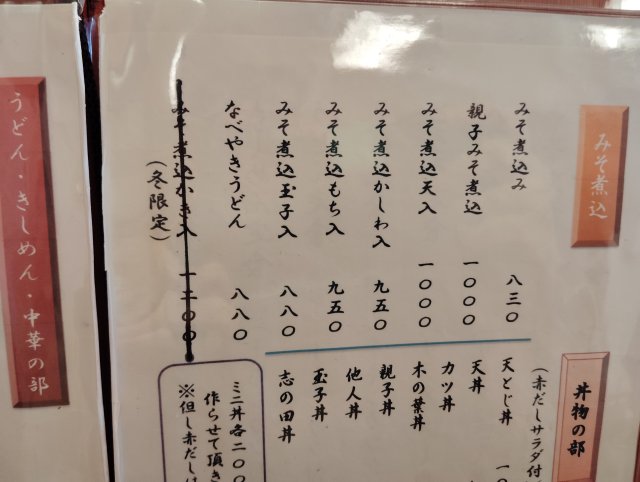 みそ煮込
みそ煮込み 八三〇
親子みそ煮込 一〇〇〇
みそ煮込天入 一〇〇〇
みそ煮込かしわ入 九五〇
みそ煮込もち入 九五〇
みそ煮込玉子入 八八〇
なべやきうどん 八八〇
みそ煮込かき入 一二〇〇
(冬限定)
丼物の部
(赤だしサラダ付
天とじ丼
天丼
カツ丼
木の葉丼
親子丼
他人丼
玉子丼
志の田丼
ミニ丼各二〇〇
作らせて頂き
※但し赤だしは
うどん・きしめん・中華の部